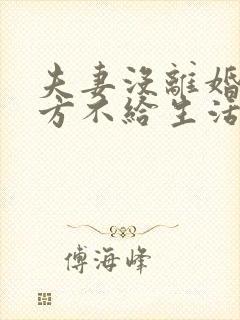 夫妻沒離婚
方不給生活
傅海峰